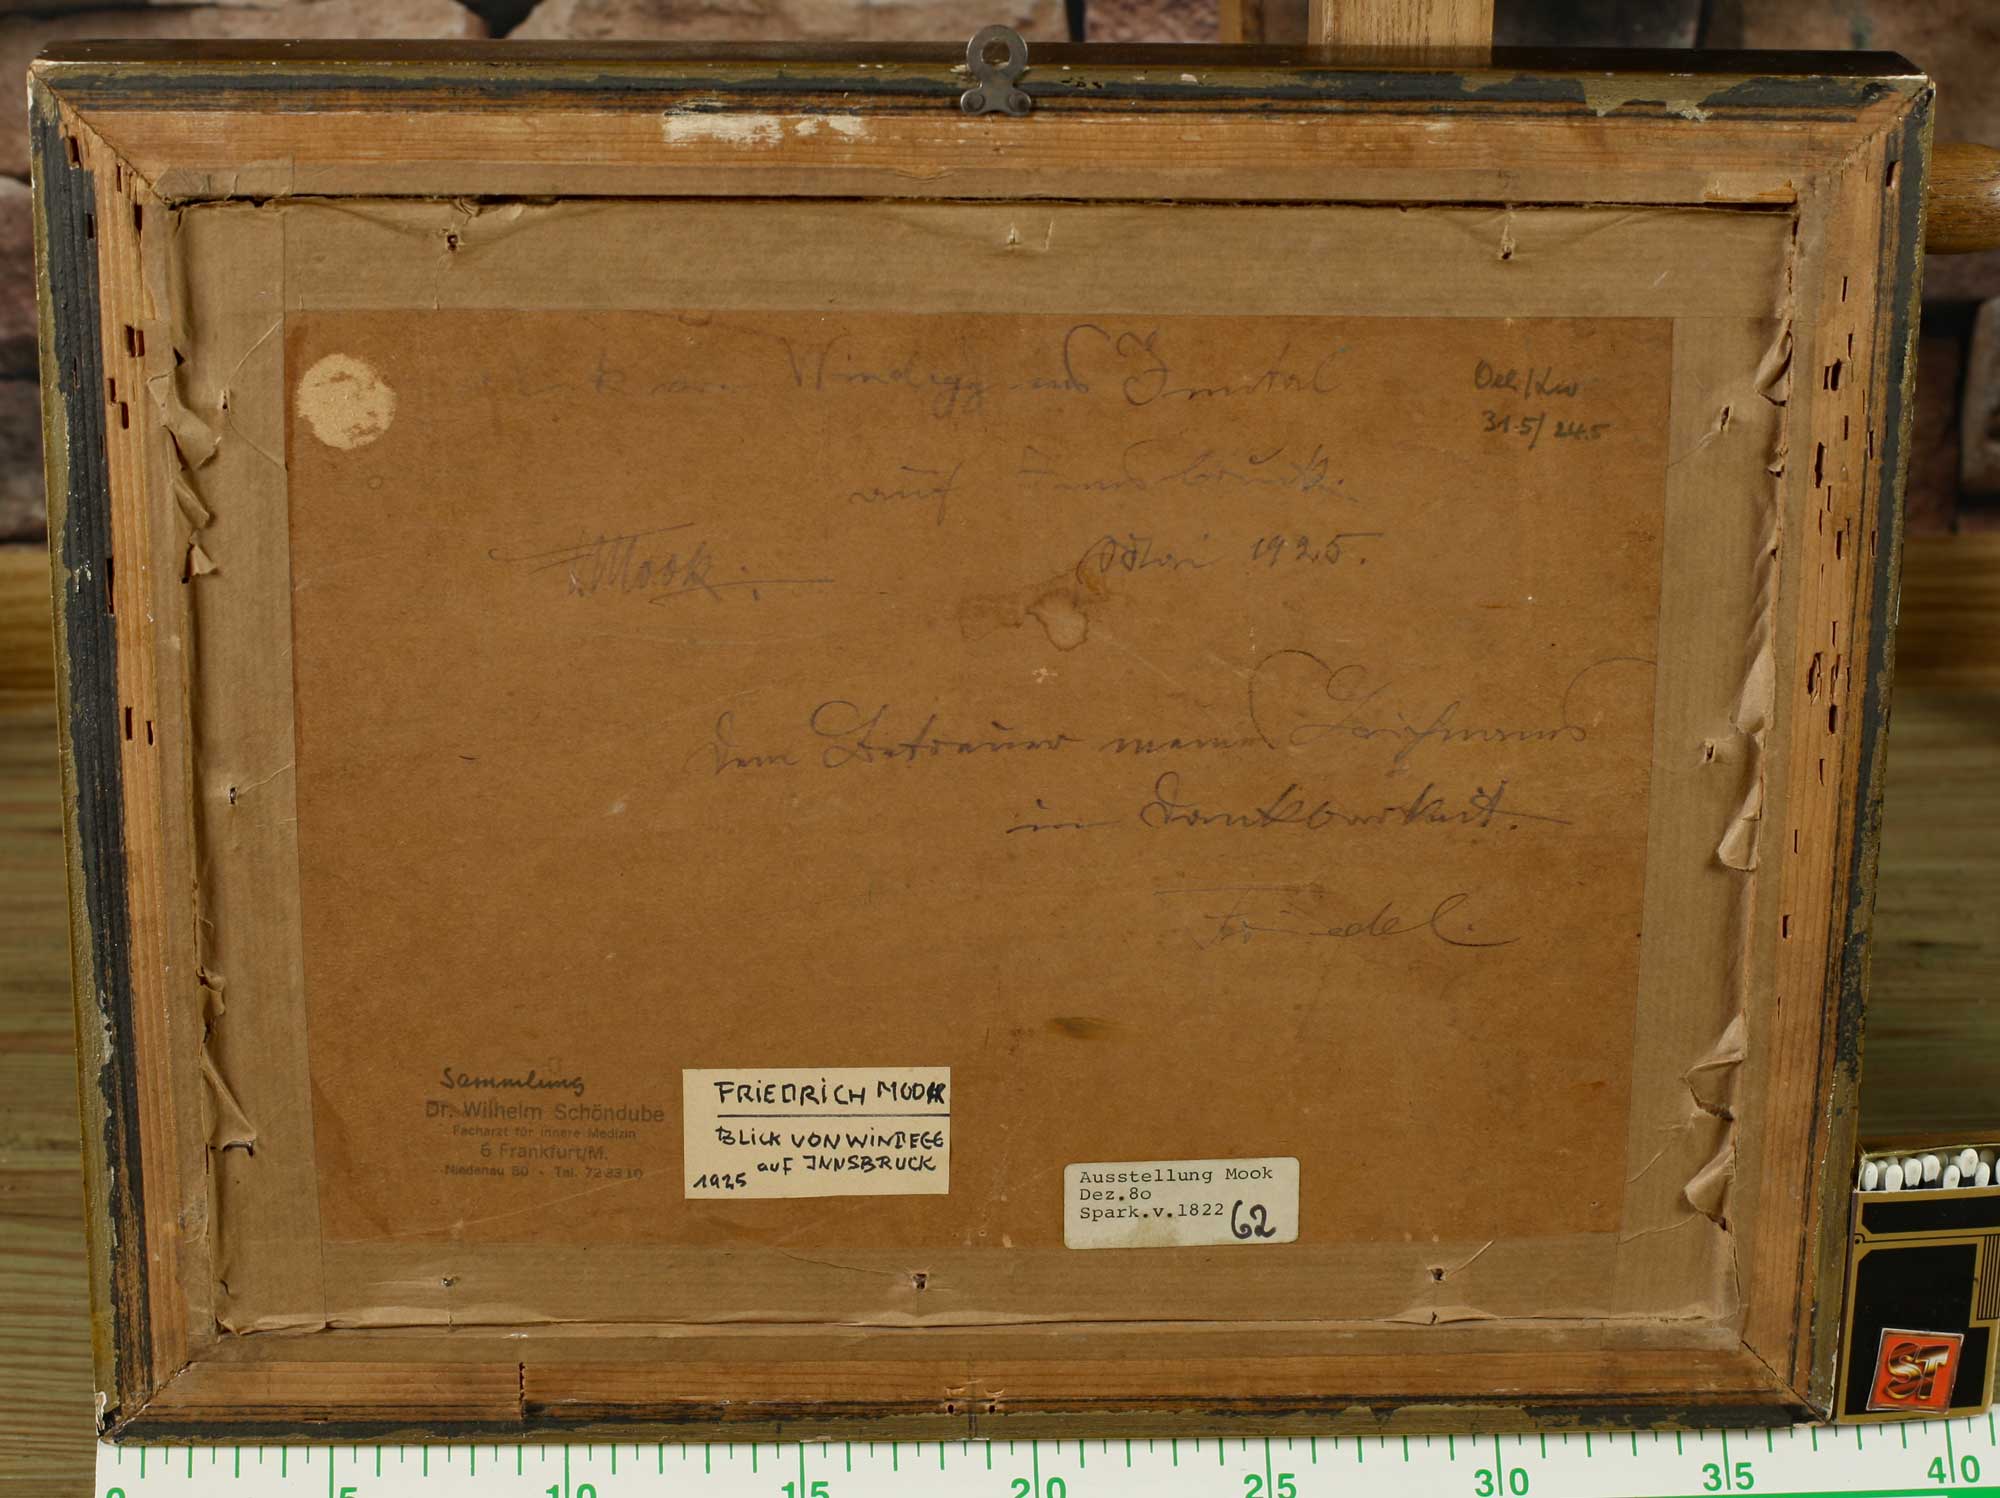 Blick von Windegg ins Inntal
Oel/Lw
31.5/24.5
auf Innsbruck.
F. Mook.
Mai 1925.
Dem Betreuer meines Leichnams
in Dankbarkeit.
Friedel.
Sammlung
Dr. Wilhelm Schöndube
Facharzt für innere Medizin
6 Frankfurt/M.
Niedenau 80 - Tel. 72 23 10
FRIEDRICH MOOK
BLICK VON WINDEGG
auf INNSBRUCK
1925
Ausstellung Mook
Dez.80
Spark.v.1822 62
ST
0 5 10 15 20 25 30 35 40